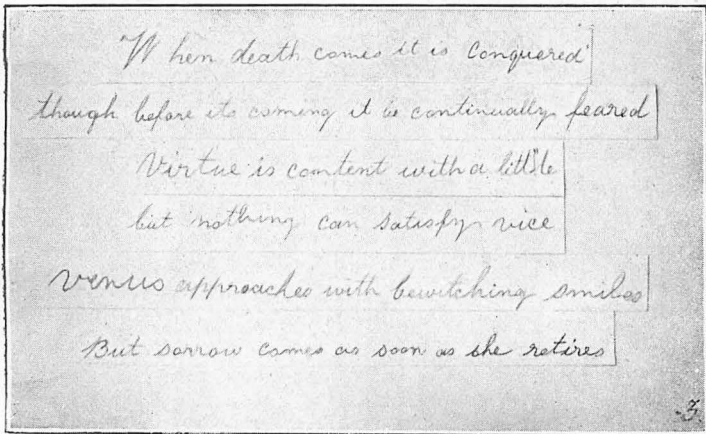 "When death comes it is conquered
though before its coming it is continually feared
Virtue is content with a little
but nothing can satisfy vice
Venus approaches with bewitching smiles
But sorrow comes as soon as she retires
3.